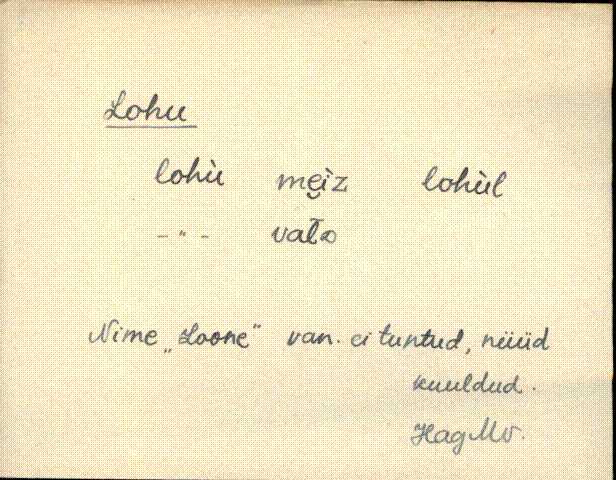 Lohu
lohù mei̯z lohùl
-"- val̄ᴅ
Nime „Loone" van. ei tuntud, nüüd
kuuldud.
Hag Mv.